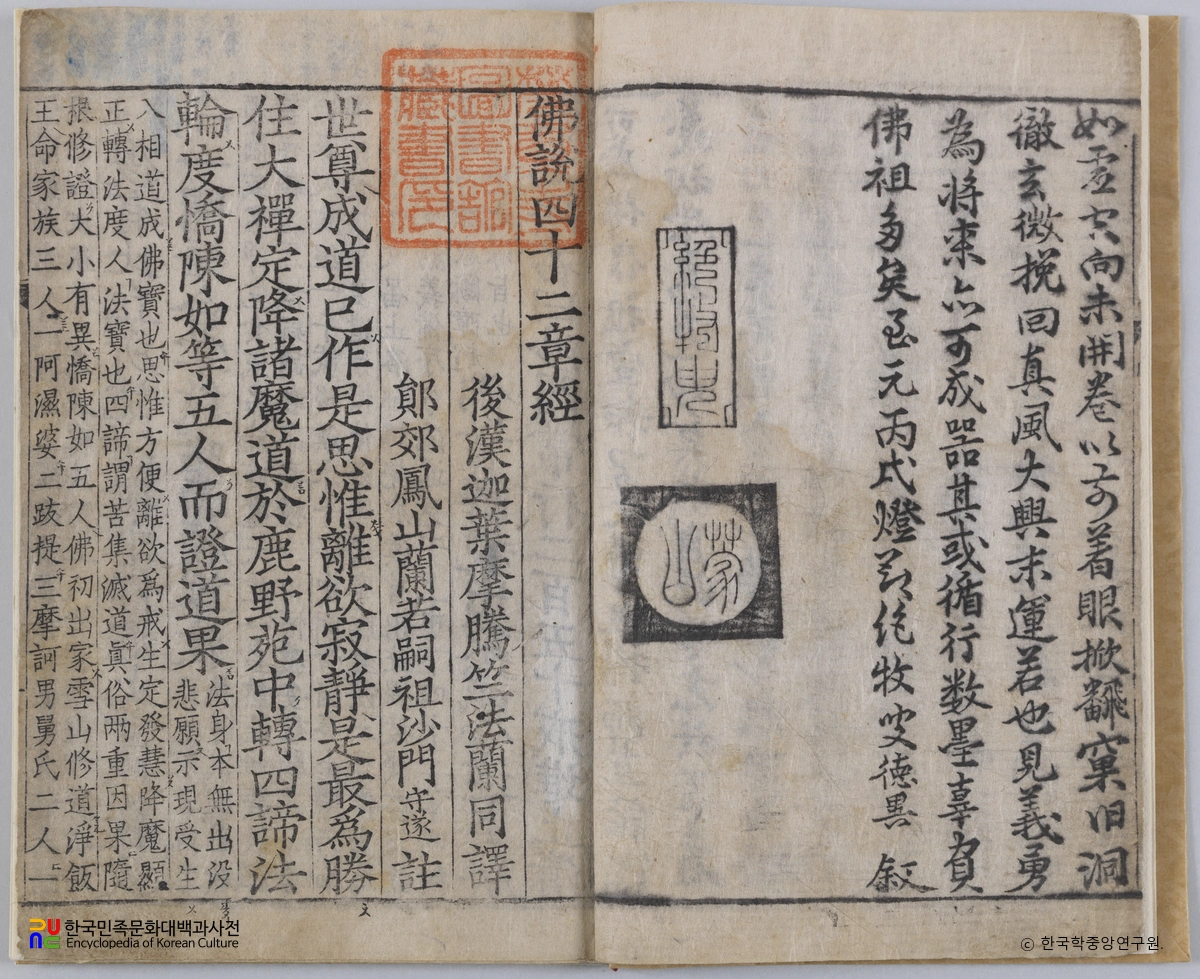 如虛空向未開卷以前着眼掀飜窠旧洞
徹玄微挽回真風大興末運若也見義勇
為將來亦可成器其或循行数墨辜負
佛祖多矣至元丙戌燈夕絶牧叟德異 叙
絶牧叟
蒙山
佛說四十二章經
後漢迦葉摩騰竺法蘭同譯
鄖郊鳳山蘭若嗣祖沙門守遂註
世尊成道已作是思惟離欲寂靜是最爲勝
住大禪定降諸魔道於鹿野苑中轉四諦法
輪度憍陳如等五人而證道果
法身本無出没
悲願示現受生
八相道成佛寶也思惟方便離欲爲戒生定發慧降魔顯
正轉法度人法寶也四諦謂苦集滅道眞俗兩重因果隨
根修證大小有異憍陳如五人佛初出家雪山修道淨飯
王命家族三人一阿濕婆二跋提三摩訶男舅氏二人一
圖書館
藏書印
한국민족문화대백과사전
Encyclopedia of Korean Culture
© 한국학중앙연구원.